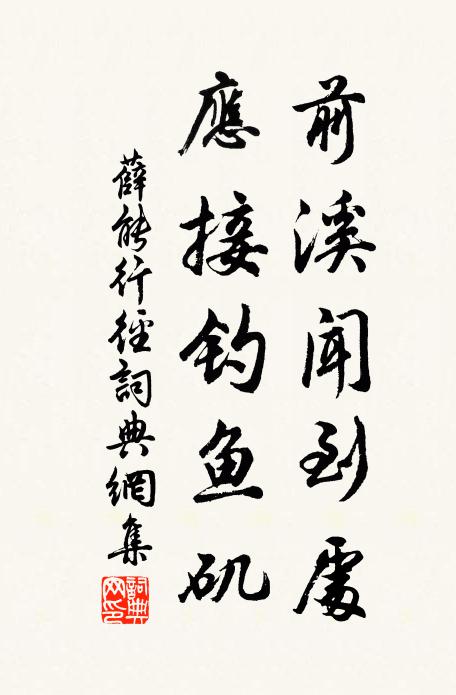 前溪闻到處
應接钓鱼矶
薛能行徑詞典網集
詞典
网印